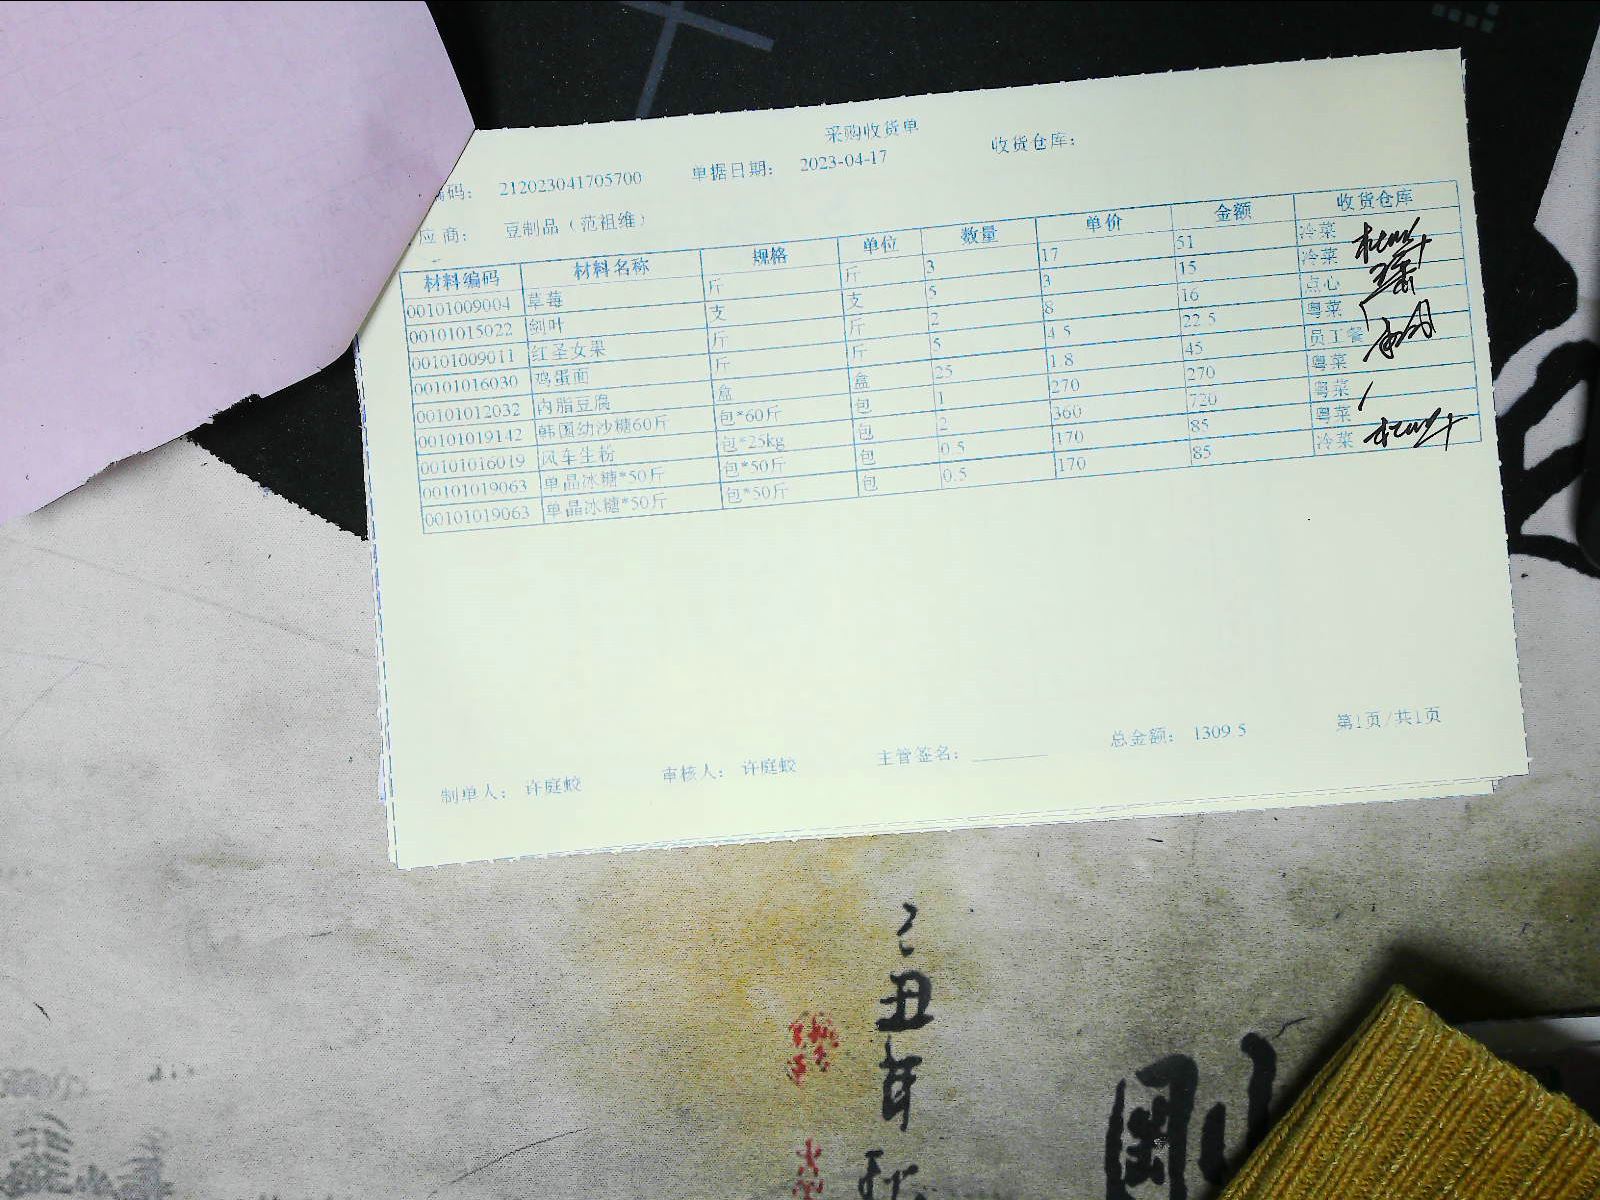 采购收货单
编码： 212023041705700 单据日期： 2023-04-17 收货仓库：
应商： 豆制品（范祖维）
材料编码 材料名称 规格 单位 数量 单价 金额 收货仓库
00101009004 草莓 斤 斤 3 17 51 冷菜
00101015022 剑叶 支 支 5 3 15 冷菜
00101009011 红圣女果 斤 斤 2 8 16 点心
00101016030 鸡蛋面 斤 斤 5 4.5 22.5 粤菜
00101012032 内脂豆腐 盒 盒 25 1.8 45 员工餐
00101019142 韩国幼沙糖60斤 包*60斤 包 1 270 270 粤菜
00101016019 风车生粉 包*25kg 包 2 360 720 粤菜
00101019063 单晶冰糖*50斤 包*50斤 包 0.5 170 85 粤菜
00101019063 单晶冰糖*50斤 包*50斤 包 0.5 170 85 冷菜
制单人： 许庭蛟 审核人： 许庭蛟 主管签名： 总金额： 1309.5 第1页/共1页
己
丑
年
秋
剛